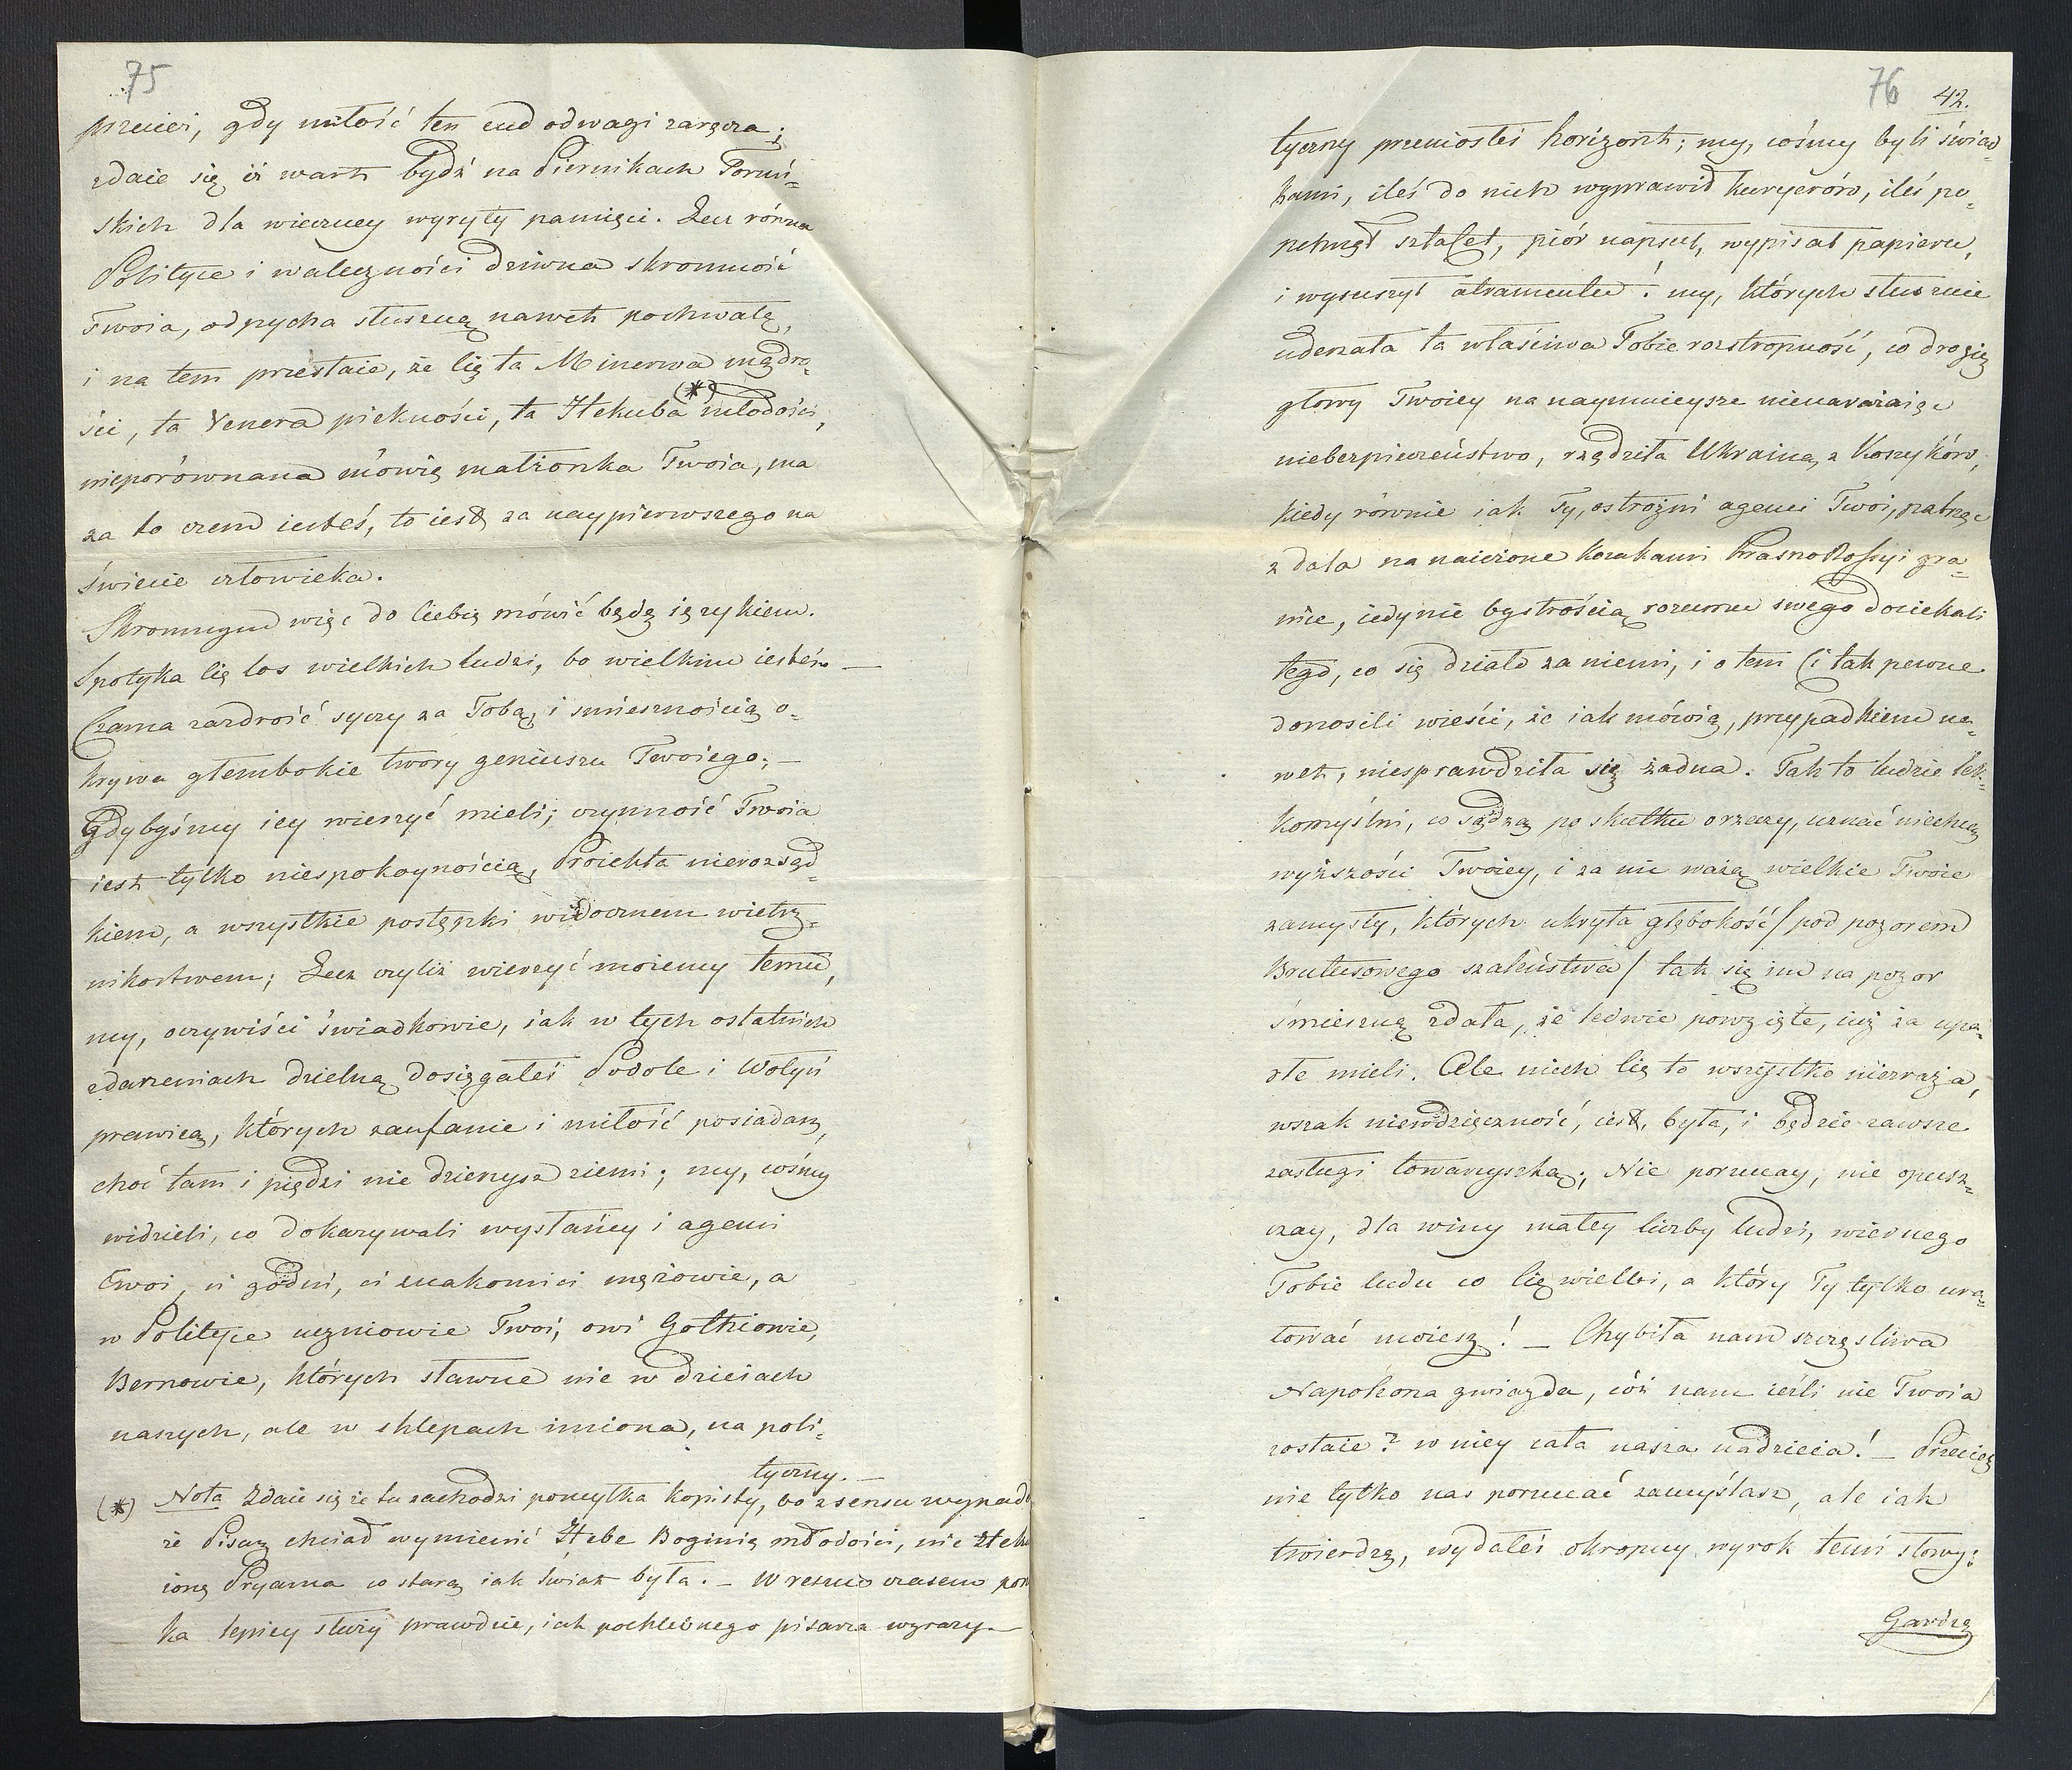 75
przeciei, gdy miłość ten cud odwagi zaręcza;
zdaie się iż wart bydź na Piernikach Toruń-
skich dla wieczney wyryty pamięci. Lecz równa
Polityce i waleczności dziwna skromność
Twoia, odpycha słuszną nawet pochwałę,
i na tem przestaie, że Cię ta Minerwa mądro-
(*)
ści, ta Venera piękności, ta Hekuba młodości,
nieporównana mówię małżonka Twoia, ma
za to czem iesteś, to iest za naypierwszego na
świecie człowieka.
Skromnym więc do Ciebie mówić będę ięzykiem.
Spotyka Cię los wielkich ludzi, bo wielkim iesteś. —
Czarna zazdrość syczy za Tobą, i śmiesznością o-
krywa głembokie twory geniuszu Twoiego; —
Gdybyśmy iey wierzyć mieli; czynność Twoia
iest tylko niespokoynością, Proiekta nierozsąd-
kiem, a wszystkie postępki widocznem wietrz-
nikostwem; Lecz czyliż wierzyć możemy temu,
my, oczywiści świadkowie, iak w tych ostatnich
zdarzeniach dzielną dosięgałeś Podole i Wołyń
prawicą, których zaufanie i miłość posiadasz,
choć tam i piędzi nie dzierzysz ziemi; my, cośmy
widzieli, co dokazywali wysłańcy i agenci
Twoi, ci godni, ci znakomici mężowie, a
w Polityce uczniowie Twoi, owi Gothiowie,
Bernowie, których sławne nie w dzieiach
naszych, ale w sklepach imiona, na poli-
tyczny. —
(*) Nota Zdaie się że tu zachodzi pomyłka kopisty, bo z sensu wypad
że Pisarz chciał wymienić Hebe Boginię młodości, nie Heku
żonę Pryama co starą iak świat była. — W reszcie czasem pom
ka lepiey służy prawdzie, iak pochlebnego pisarza wyrazy —
76 42.
tyczny przeniosłeś horizont; my, cośmy byli świad-
kami, ileś do nich wyprawił kuryerów, ileś po-
pchnął sztafet, piór napsuł, wypisał papieru,
i wysuszył atramentu! my, których słusznie
uderzała ta właściwa Tobie rozstropność, co drogię
głowy Twoiey na naymnieysze nienarażaiąc
niebezpieczeństwo, rządziła Ukrainą z Koszyków,
kiedy równie iak Ty, ostrożni agenci Twoi, patrząc
z dala na naieżone kozakami Krasno Rossyi gra-
nice, iedynie bystrością rozumu swego dociekali
tego, co się działo za niemi, i o tem (i tak pewne
donosili wieści, że iak mówią, przypadkiem na-
wet, niesprawdziła się żadna. Tak to ludzie lek-
komyślni, co sądzą po skutku o rzeczy, uznać niechcą
wyższości Twoiey, i za nic ważą wielkie Twoie
zamysły, których ukryta głębokość / pod pozorem
Brutusowego szaleństwa / tak się im na pozor
śmieszną zdała, że ledwie powzięte, iuż za upa-
dłe mieli. Ale niech Cię to wszystko niezraża,
wszak niewdzięczność, iest, była, i będzie zawsze
zasługi towarzyszką; Nie porzucay, nie opusz-
czay, dla winy małey liczby ludzi, wiernego
Tobie ludu co Cię wielbi, a który Ty tylko ura-
tować możesz! — Chybiła nam szczęśliwa
Napoleona gwiazda, cóż nam ieśli nie Twoia
zostaie? w niey cała nasza nadzieia! — Przecięż
nie tylko nas porzucać zamyślasz, ale iak
twierdzą, wydałeś okropny wyrok temi słowy:
Gardzę